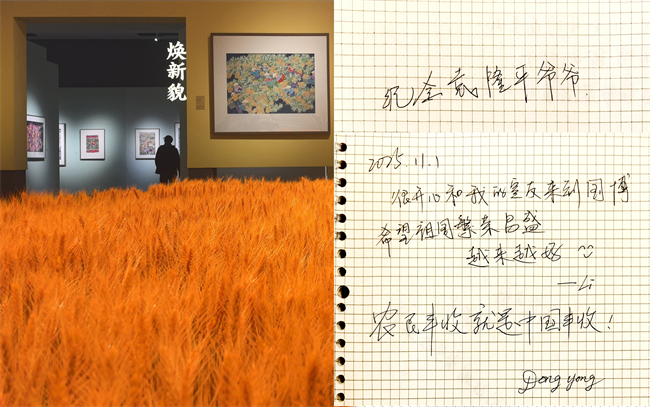 焕新貌
纪念袁隆平爷爷.
2025.11.1
很开心和我的室友来到国博
希望祖国繁荣昌盛
越来越好
—Li
农民丰收就是中国丰收！
Dong yong